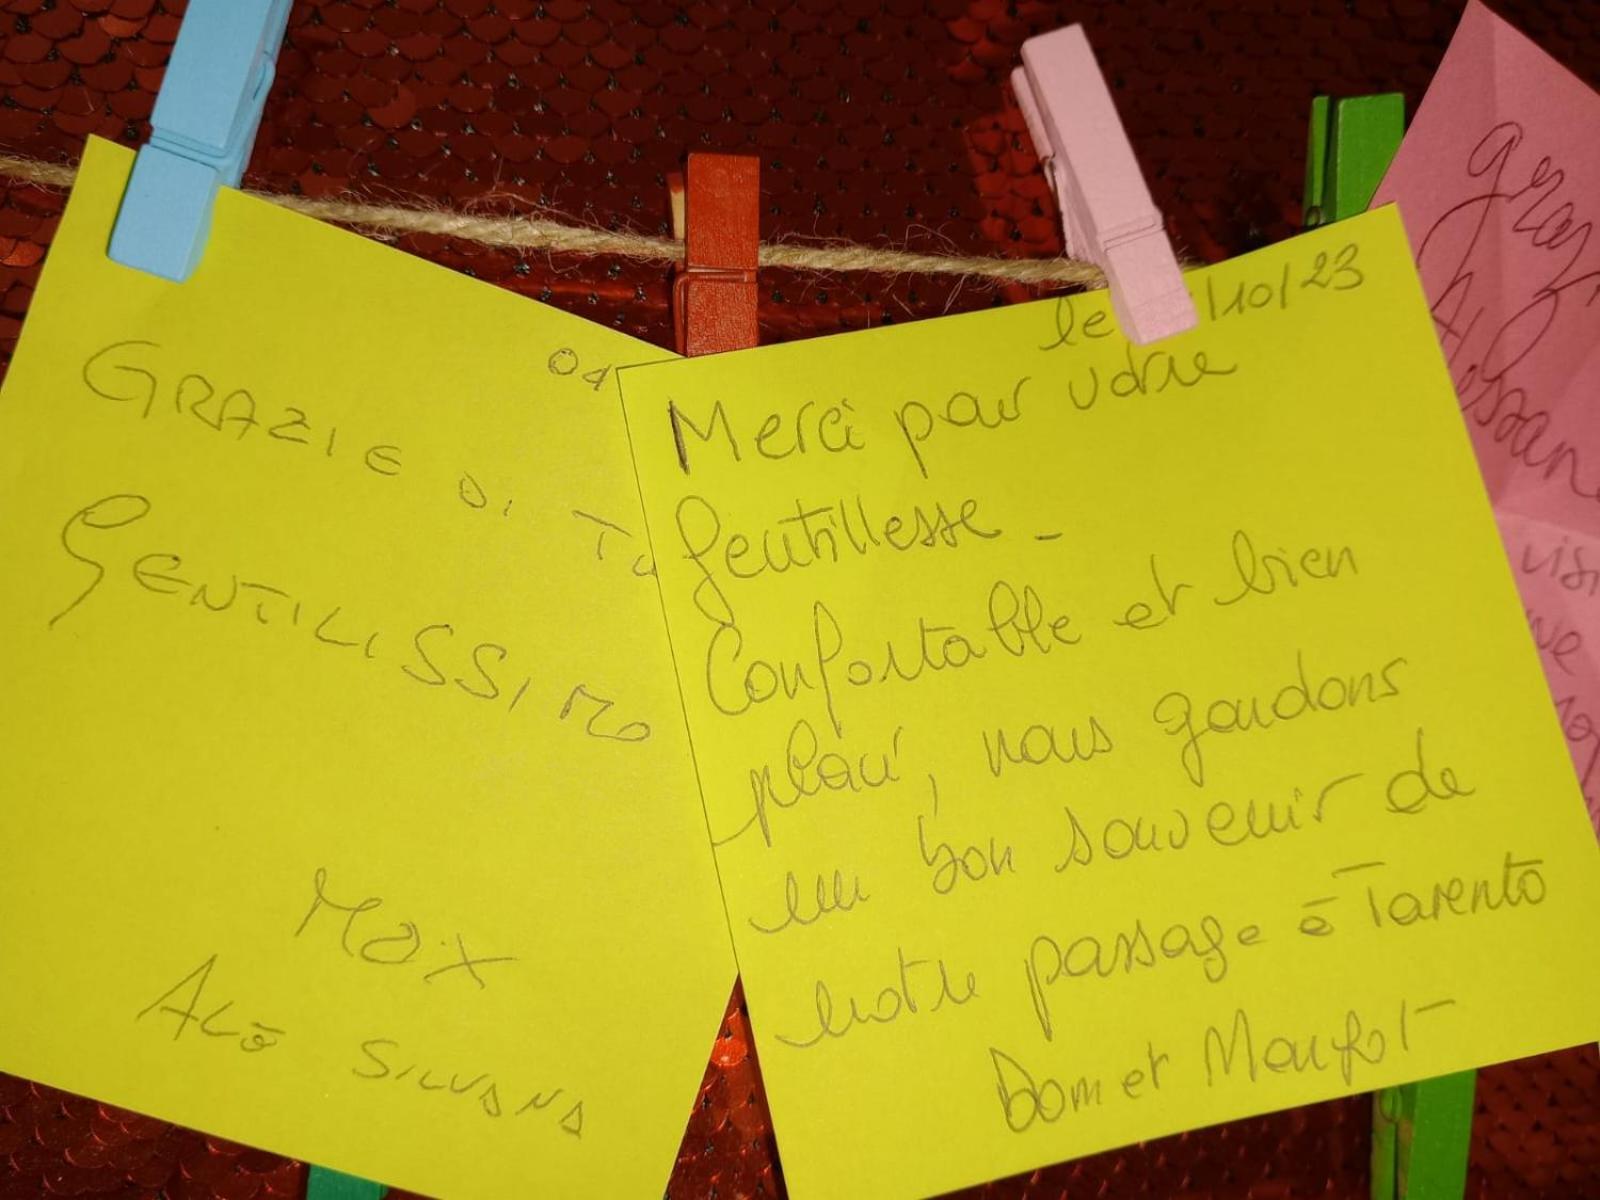 04
GRAZIE DI TU
GENTILISSIMO
MAX
ALÒ SILVANA
le /10/23
Merci pour votre
gentillesse -
Confortable et bien
placé, nous gardons
un bon souvenir de
notre passage à Tarento
Dom et
graz
Alessan
visi